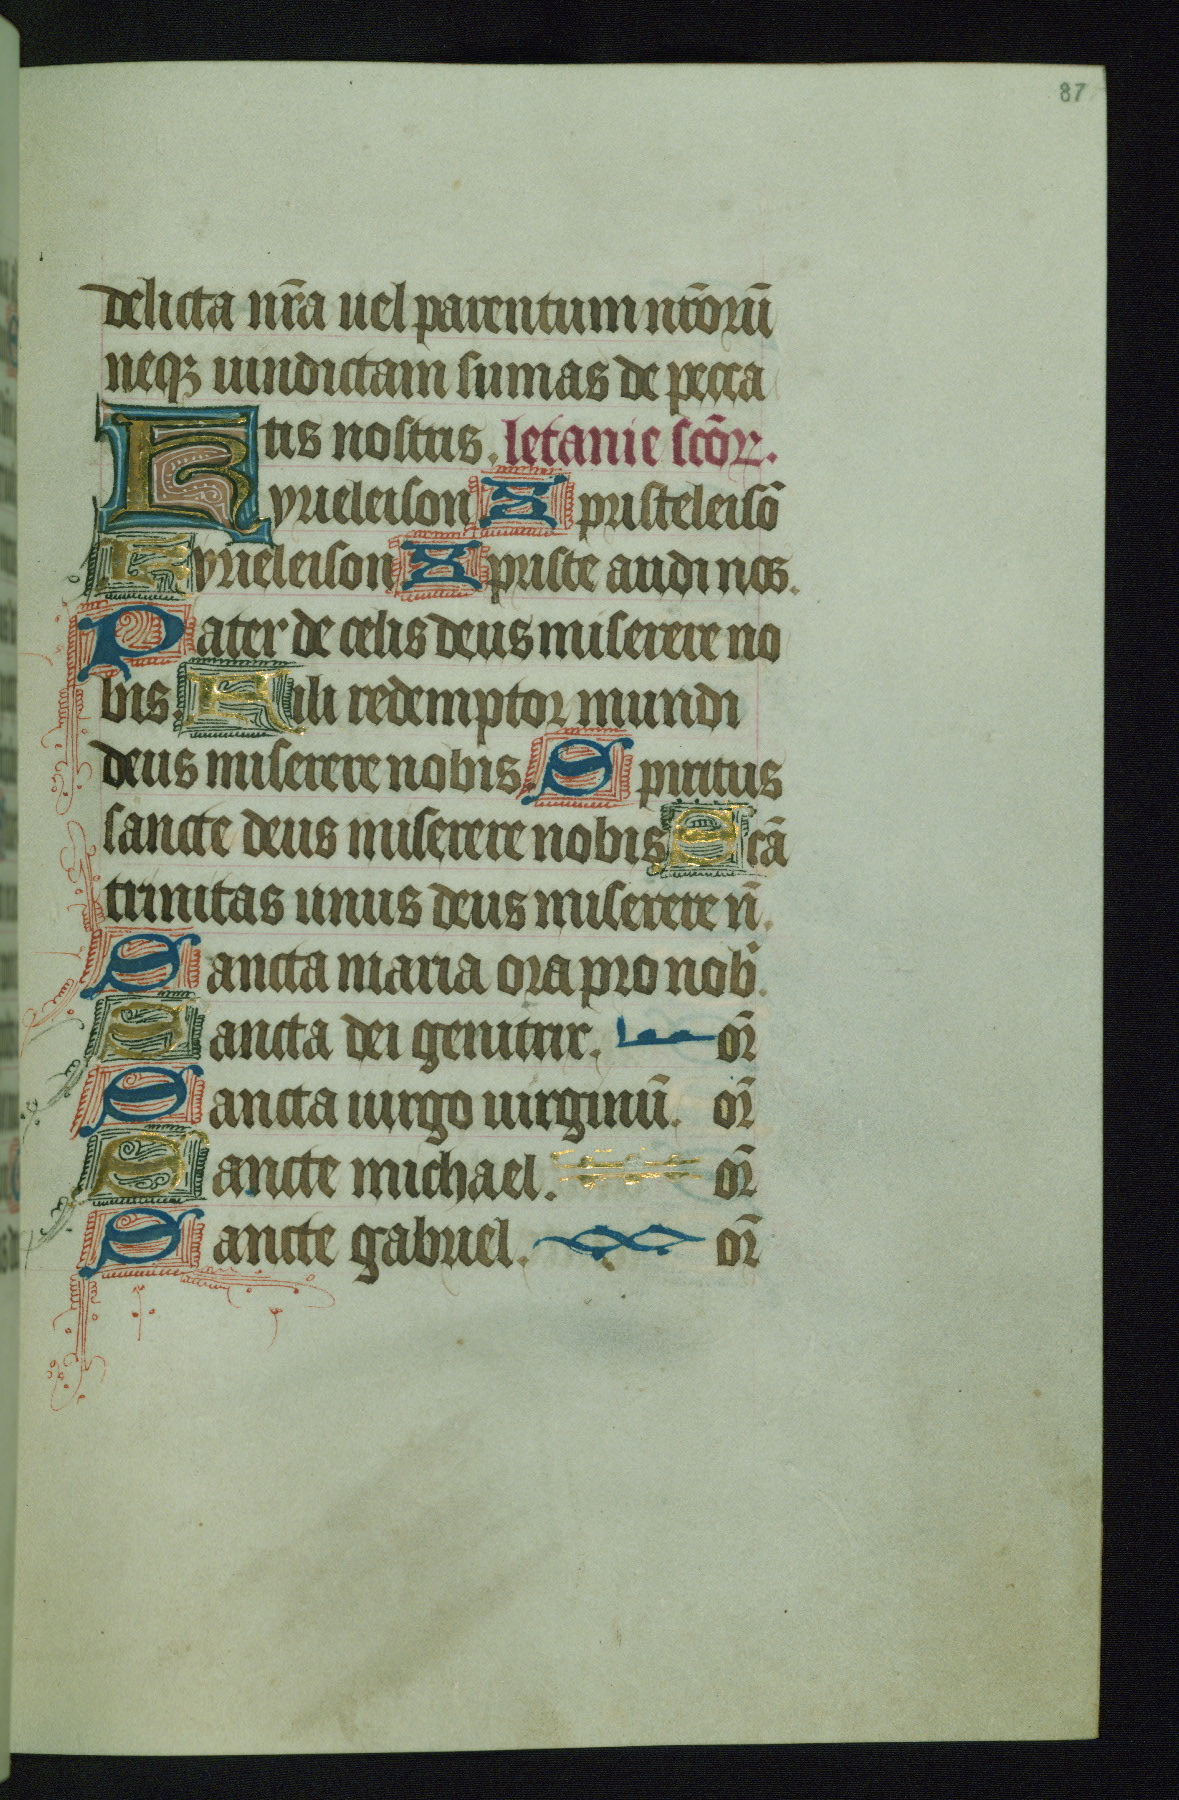 87
delicta nr̄a uel parentum nr̄oꝝ̄
neqꝫ uindictam sumas de pecca
tis nostris. letanie scōꝝ.
Kyrieleison Xpristeleisō
Kyrieleison Xpriste audi nos.
Pater de celis deus miserere no
bis. Fili redemptor mundi
deus miserere nobis. Spiritus
sancte deus miserere nobis Scā
trinitas unus deus miserere n̄.
Sancta maria ora pro nob̄.
Sancta dei genitrix. or̄
Sancta uirgo uirginū. or̄
Sancte michael. or̄
Sancte gabriel. or̄